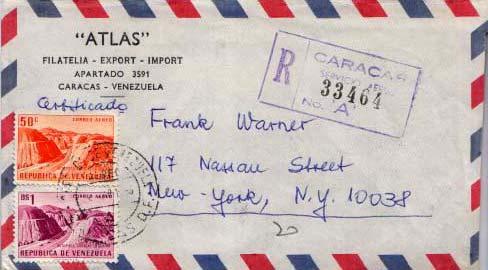 "ATLAS"
FILATELIA - EXPORT - IMPORT
APARTADO 3591
CARACAS - VENEZUELA
Certificado
R
CARACAS
SERVICIO AEREO
33464
NO. A
Frank Warner
117 Nassau Street
New-York, N.Y. 10038
20
50c CORREO AEREO
REPUBLICA DE VENEZUELA
BS 1 CORREO AEREO
REPUBLICA DE VENEZUELA